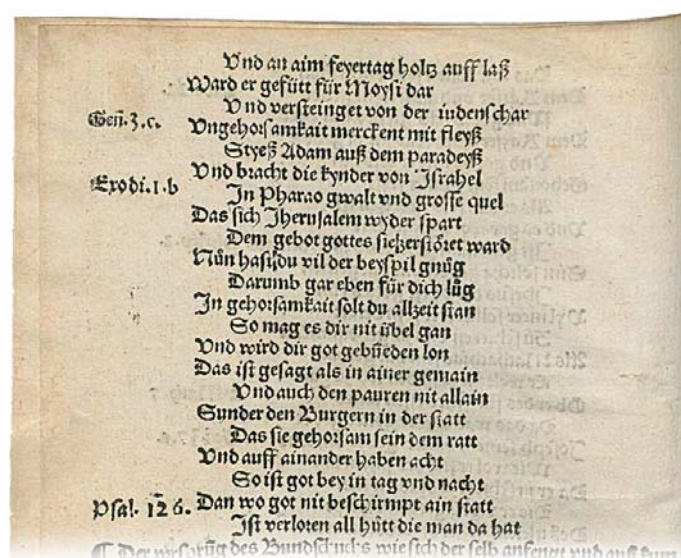 Vnd an aim feyertag holtz auff laß
Ward er gefütt für Moysi dar
Vnd versteinget von der iudenschar
Gen̄.3.c. Vngehorsamkait merckent mit fleyß
Styeß Adam auß dem paradeyß
Vnd bracht die kynder von Israhel
Exodi.1.b In Pharao gwalt vnd grosse quel
Das sich Iherusalem wyder spart
Dem gebot gottes sie zerstöret ward
Nůn hastu vil der beyspil gnůg
Darumb gar eben für dich lůg
In gehorsamkait solt du allzeit stan
So mag es dir nit übel gan
Vnd wird dir got den lon
Das ist gesagt als in ainer gemain
Vnd auch den pauren nit allain
Sunder den Burgern in der statt
Das sie gehorsam sein dem ratt
Vnd auff ainander haben acht
So ist got bey in tag vnd nacht
Psal. 126. Dan wo got nit beschirmpt ain statt
Ist verloren all hütt die man da hat
Der vrsprüg des Bundschuchs wie sich der selb anfengt vnd auß